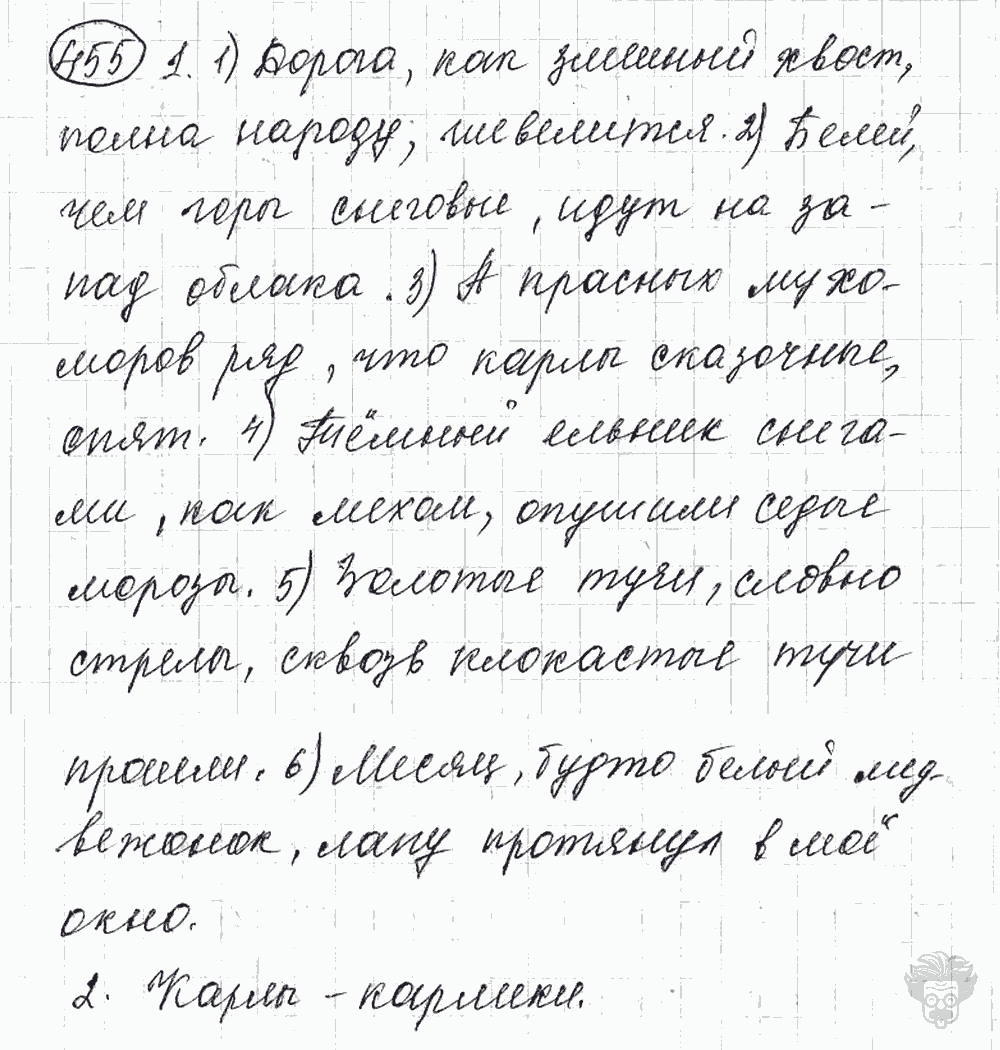 455 1. 1) Дорога, как змеиный хвост,
полна народу, шевелится. 2) Белей,
чем горы снеговые, идут на за-
пад облака. 3) А красных мухо-
моров ряд, что карлы сказочные,
спят. 4) Тёмный ельник снега-
ми, как мехом, опушили седые
морозы. 5) Золотые тучи, словно
стрелы, сквозь клокастые тучи
прошли. 6) Месяц, будто белый мед-
вежонок, лапу протянул в моё
окно.
2. Карлы - карлики.